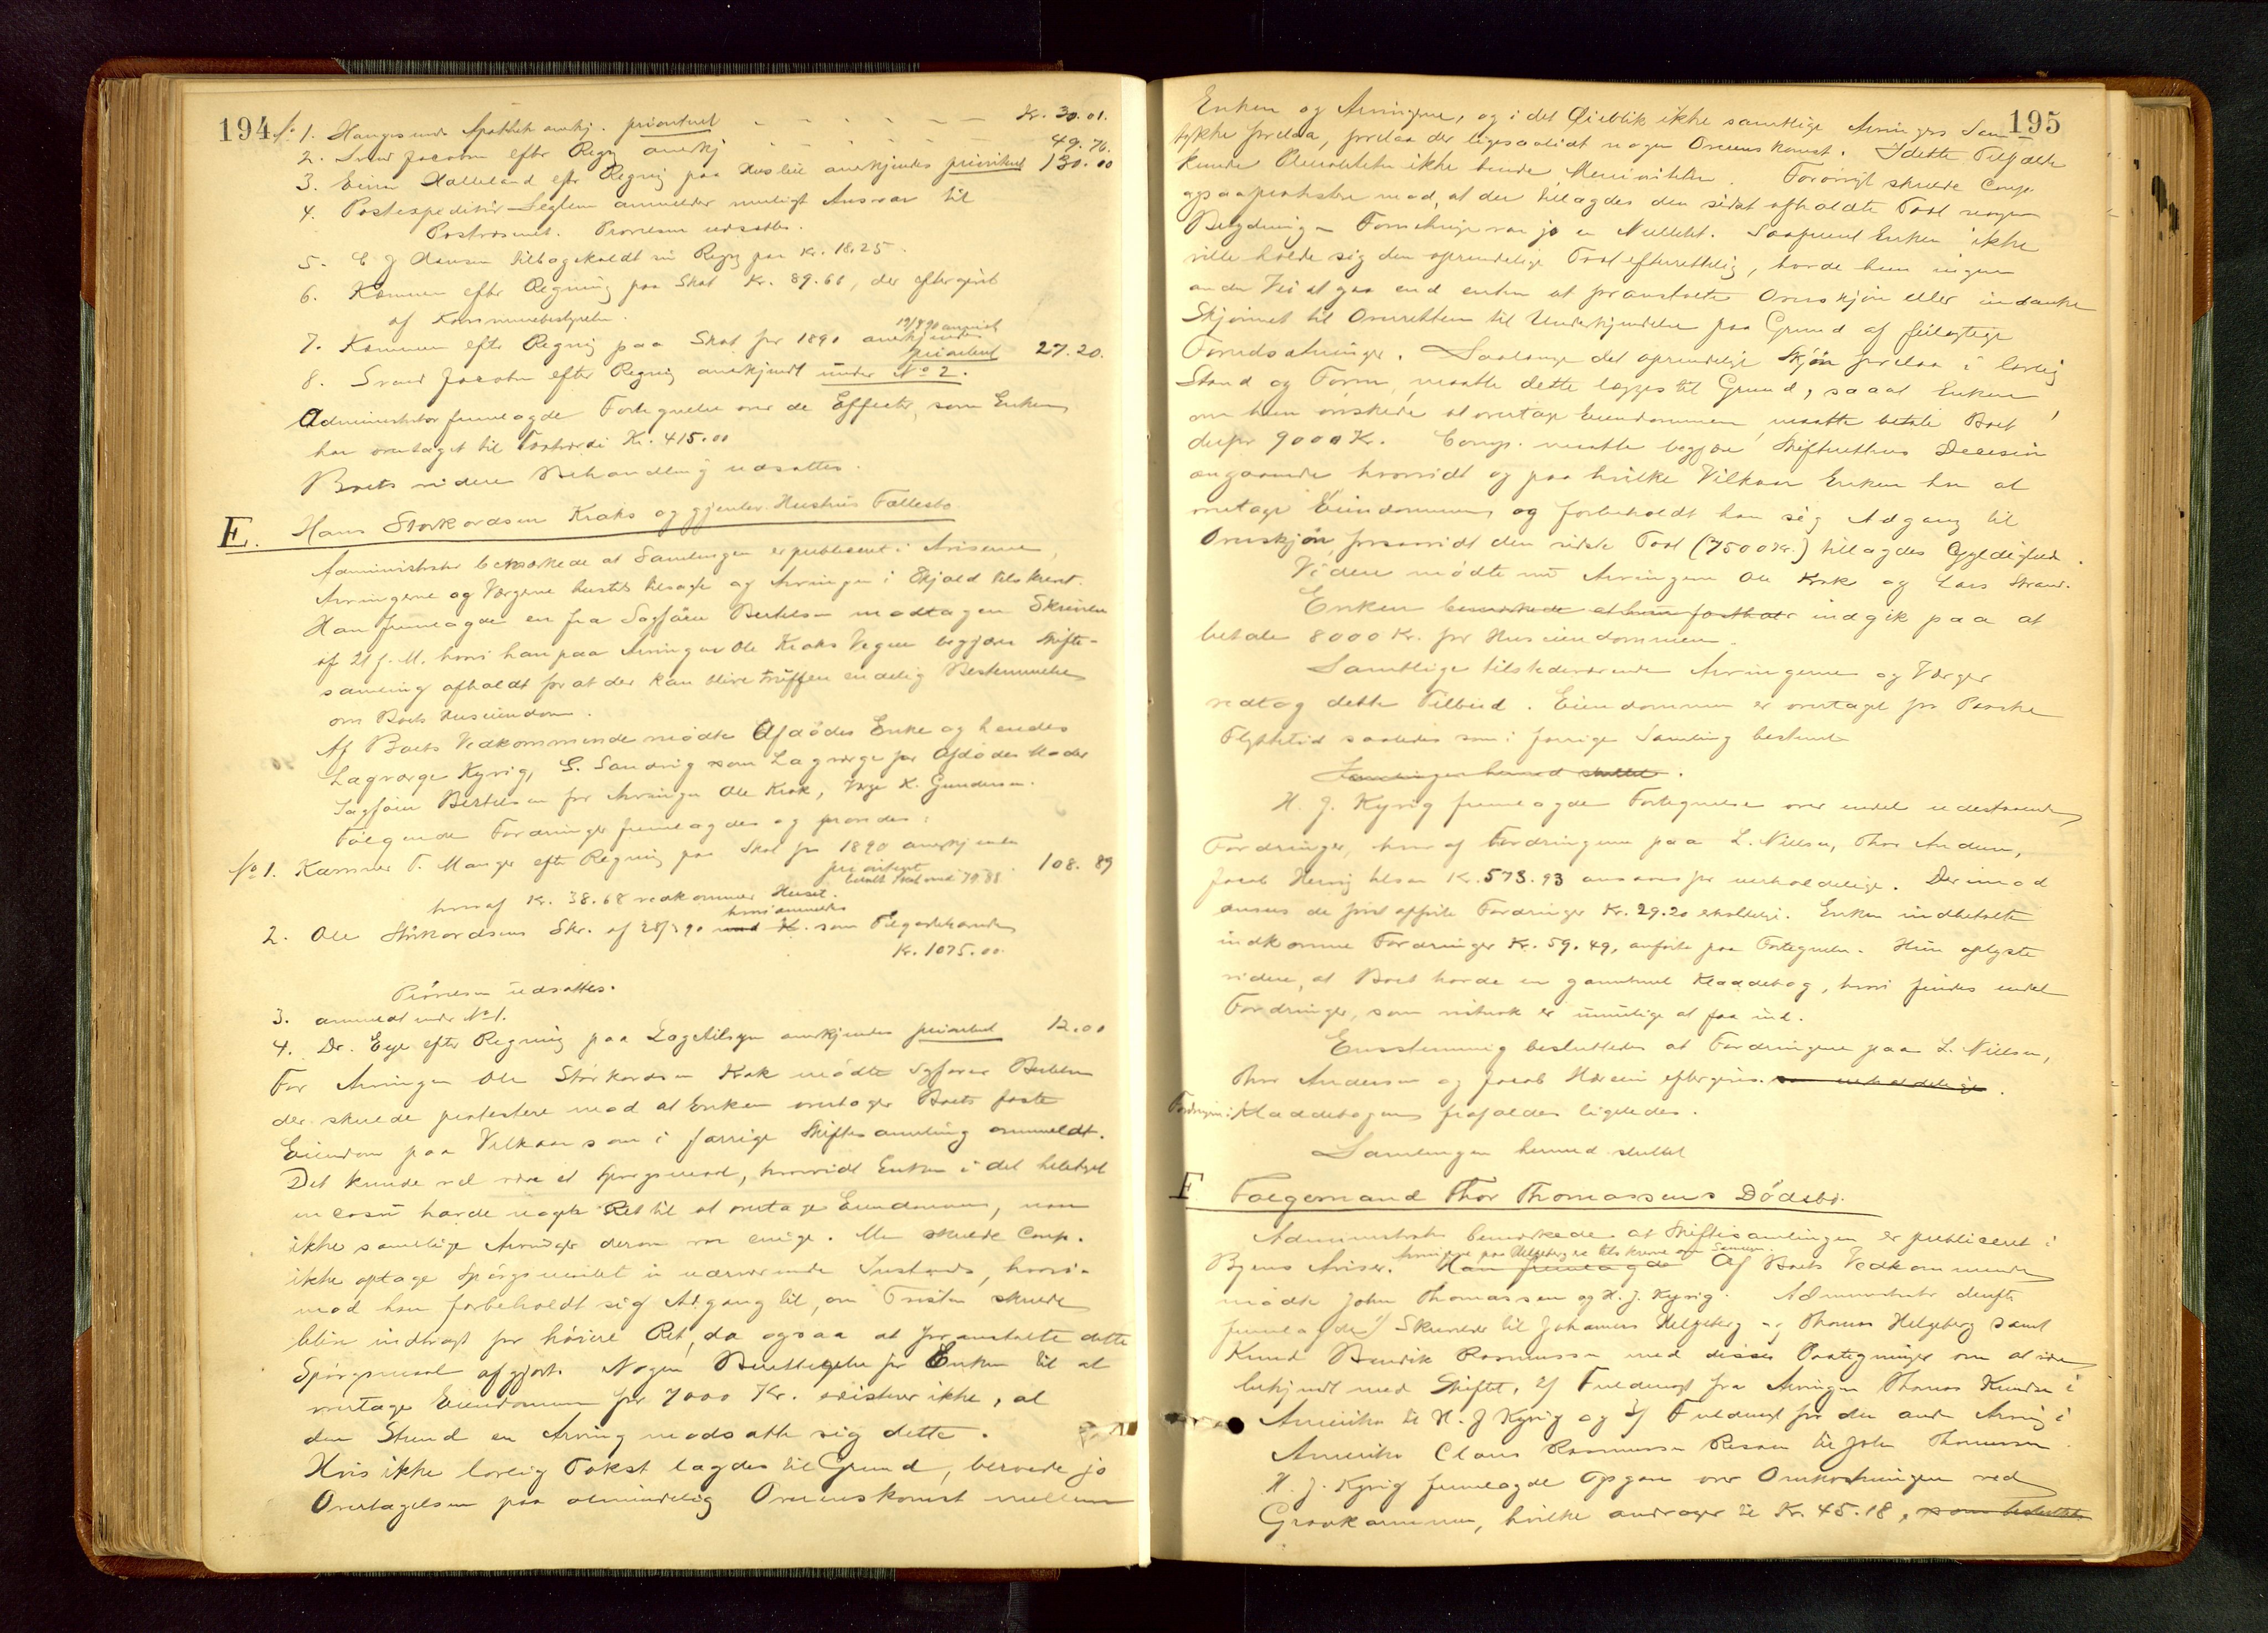 194
No 1. Haugesunds Apothek anerkj. prioriteret - - - - - - Kr. 30.01.
2. Svend Jacobsen efter Regng anerkj - - - - 49.76.
3. Einar Halleland efter Regning paa Husleie anerkjendes prioriteret 130.00
4. Postexpeditør Seglem anmelder muligt Ansvar til
Postvæsenet. Prøvelsen udsattes.
5. C J Hansen tilbagekaldt sin Regng paa Kr. 18.25.
6. Kæmner efter Regning paa Skat Kr. 89.60, der eftergivet
af Kommunebestyrelsen.
7. Kæmner efter Regning paa Skat for 1890 anerkjendes
prioriteret 27.20.
8. Svend Jacobsen efter Regning anerkjendt under No 2.
Administrator fremlagde Fortegnelse over de Effecter, som Enken
har overtaget til Taxtværdi Kr. 415.00
Boets videre Behandling udsattes.
E. Hans Storkordsen Kraks og gjenlev. Hustrus Fællesbo
Administrator bemærkede at Samlingen er publiceret i Aviserne,
Arvingerne og Værgerne herstds tilsagte og Arvingen i Skjold tilskrevet.
Han fremlagde en fra Sagfører Bertelsen modtagen Skrivelse
af 21 f. M. hvori han paa Arvingen Ole Kraks Vegne begjærer Skifte-
samling afholdt for at der kan blive truffen endelig Bestemmelse
om Boets Huseiendom.
Af Boets Vedkommende mødte Afdødes Enke og hendes
Lagværge Kyvig, G. Sandvig som Lagværge for Afdødes Moder
Sagfører Bertelsen for Arvingen Ole Krak, Værge K. Gundersen.
Følgende Fordringer fremlagdes og prøvedes:
No 1. Kæmner T. Manger efter Regning paa Skat for 1890 anerkjendes
prioriteret 108.89
hvoraf Kr. 38.68 vedkommer Huset.
2. Ole Storkordsens Skr. af 28/3 90 hvori anmeldes som Tilgodehavende
Kr. 1075.00
Prøvelsen udsattes.
3. anmeldt under No 1.
4. Dr. Eye efter Regning paa Lægetilsyn anerkjendes prioriteret 12.00
For Arvingen Ole Storkordsen Krak mødte Sagfører Bertelsen
der skulde protestere mod at Enken overtager Boets faste
Eiendom paa Vilkaar som i forrige Skiftesamling anmeldt.
Det kunde vel være et Spørgsmaal, hvorvidt Enken i det heletaget
in casu havde nogen Ret til at overtage Eiendommen, naar
ikke samtlige Arvinger derom var enige. Men skulde Comp.
ikke optage Spørgsmaalet i nærværende Instants, hvori-
mod han forbeholdt sig Adgang til, om Tvisten skulde
blive indbragt for høiere Ret, da ogsaa at foranstalte dette
Spørgsmaal afgjort. Nogen Berettigelse for Enken til at
overtage Eiendommen for 7000 Kr. existerer ikke, al
den Stund en Arving modsatte sig dette.
Hvis ikke lovlig Takst lagdes til Grund, beroede jo
Overtagelsen paa almindelig Overenskomst mellem
195
Enken og Arvingerne, og i det Øieblik ikke samtlige Arvingers Sam-
tykke forelaa, forelaa der ligesaalidt nogen Overenskomst. I dette Tilfælde
kunde Pluraliteten ikke binde Minoriteten. Forøvrigt skulde Comp.
ogsaa protestere mod, at der tillagdes den sidst afholdte Taxt nogen
Betydning - Forretningen var jo en Nullitet. Saafremt Enken ikke
vilde holde sig den oprindelige Taxt efterrettelig, havde hun ingen
anden Vei at gaa end enten at foranstalte Overskjøn eller indanke
Skjønnet til Overretten til Underkjendelse paa Grund af feilagtige
Forudsætninger. Saalænge det oprindelige Skjøn forelaa i lovlig
Stand og Form, maatte dette lægges til Grund, saaat Enken
om hun ønskede at overtage Eiendommen, maatte betale Boet
derfor 9000 Kr. Comp. maatte begjære Skifterettens Decision
angaaende hvorvidt og paa hvilke Vilkaar Enken har at
overtage Eiendommen og forbeholdt han sig Adgang til
Overskjøn forsaavidt den sidste Taxt (7500 Kr.) tillagdes Gyldighed.
Videre mødte nu Arvingerne Ole Krak og Lars Strand.
Enken bemærkede at hun fastholdt indgik paa at
betale 8000 Kr. for Huseiendommen.
Samtlige tilstedeværende Arvingerne og Værger
vedtog dette Tilbud. Eiendommen er overtaget fra Paaske
Flyttetid saaledes som i forrige Samling bestemt
Samlingen hermed sluttet.
H. J. Kyvig fremlagde Fortegnelse over endel udestaaende
Fordringer, hvoraf Fordringerne paa L. Nilsen, Thor Andersen,
Jacob Hervig tilsam Kr. 573.93 ansaaes for uerholdelige. Derimod
ansees de først opførte Fordringer Kr. 29.20 erholdelige. Enken indbetalte
indkomne Fordringer Kr. 59.49, anførte paa Fortegnelsen. Hun oplyste
videre, at Boet havde en gammel Kladdebog, hvori findes endel
Fordringer, som nutsok er umulige at faa ind.
Enstemmig besluttedes at Fordringerne paa L. Nilsen,
Thor Andersen og Jacob Hervig eftergives. som uerholdelige.
Fordringerne i Kladdebogen frafaldes ligeledes.
Samlingen hermed sluttet
F. Følgemand Thor Thomassens Dødsbo.
Administrator bemærkede at Skiftesamlingen er publiceret i
Byens Aviser. Arvingerne paa Helgeberg er tilskrevne om Samlingen. Han fremlagde Af Boets Vedkommende
mødte John Thomassen og H. J. Kyvig. Administrator derefter
fremlagde 1/ Skrivelse til Johannes Helgeberg og Thomas Helgeberg samt
Knud Bendik Rasmussen med disses Paategninger om at være
bekjendt med Skiftet, 2/ Fuldmagt fra Arvingen Thomas Knudsen i
Amerika til H. J Kyvig og 3/ Fuldmagt fra den anden Arving i
Amerika Claus Rasmussen til John Thomassen
H. J. Kyvig fremlagde Opgave over Omkostningen ved
Gravkammen, hvilke andrager til Kr. 45.18, som besluttedes